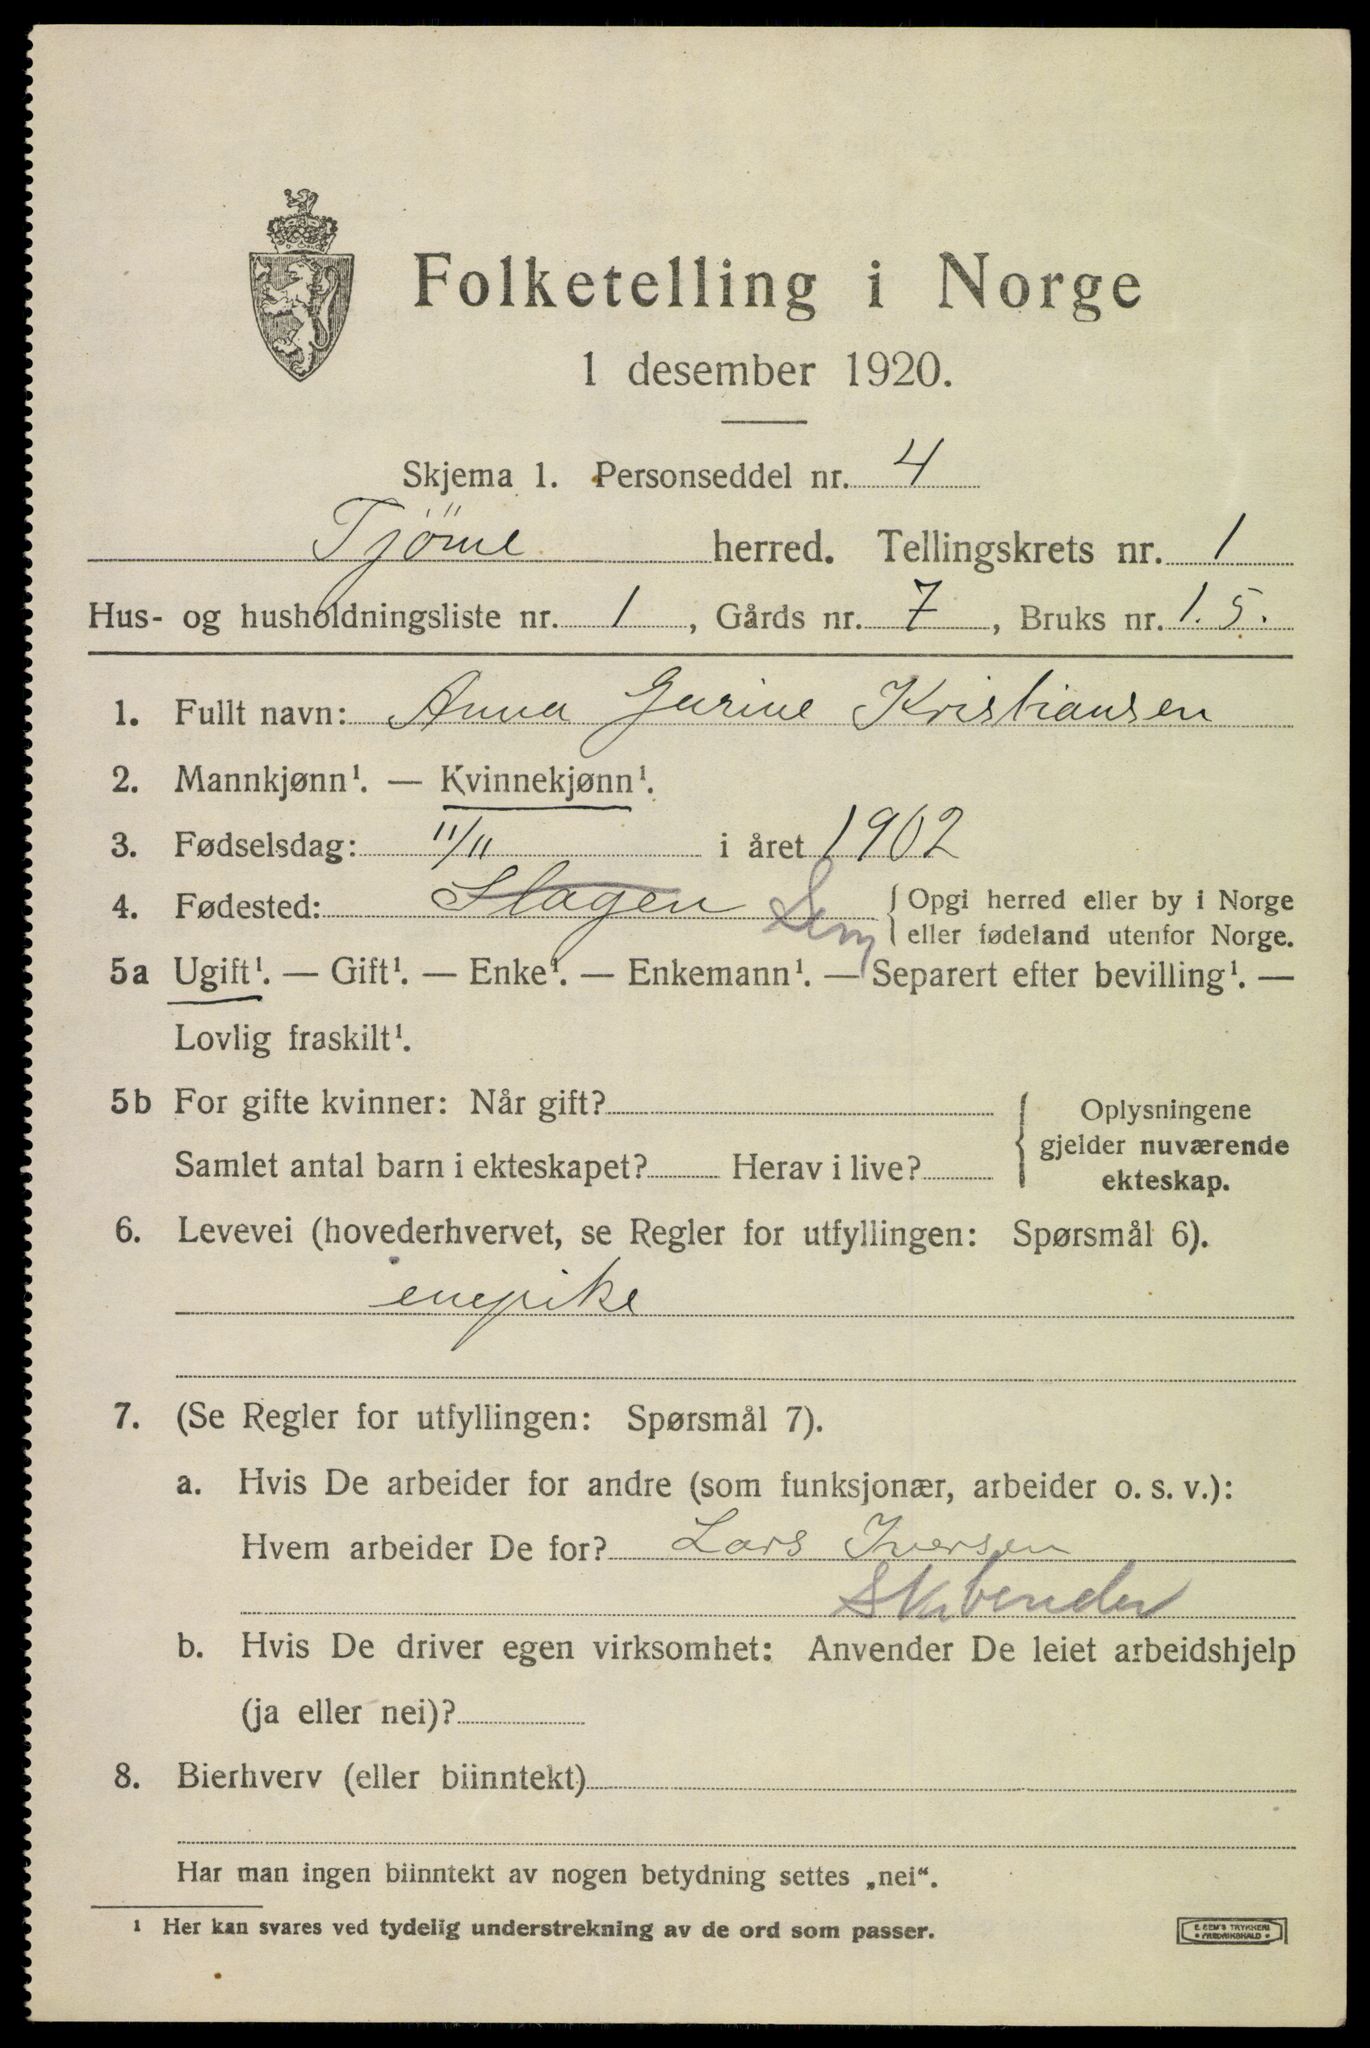 Folketelling i Norge
1 desember 1920.
Skjema 1. Personseddel nr. 4
Tjöme herred. Tellingskrets nr. 1
Hus- og husholdningsliste nr. 1, Gårds nr. 7, Bruks nr. 1.5.
1. Fullt navn: Anna Gurine Kristiansen
2. Mannkjønn¹. — Kvinnekjønn¹.
3. Fødselsdag: 11/11 i året 1902
4. Fødested: Slagen Sem { Opgi herred eller by i Norge
eller fødeland utenfor Norge.
5a Ugift¹. — Gift¹. — Enke¹. — Enkemann¹. — Separert efter bevilling¹. —
Lovlig fraskilt¹.
5b For gifte kvinner: Når gift? { Oplysningene
gjelder nuværende
Samlet antal barn i ekteskapet? Herav i live?
ekteskap.
6. Levevei (hovederhvervet, se Regler for utfyllingen: Spørsmål 6).
enepike
7. (Se Regler for utfyllingen: Spørsmål 7).
a. Hvis De arbeider for andre (som funksjonær, arbeider o. s. v.):
Hvem arbeider De for? Lars Iversen
b. Hvis De driver egen virksomhet: Anvender De leiet arbeidshjelp
(ja eller nei)?
8. Bierhverv (eller biinntekt)
Har man ingen biinntekt av nogen betydning settes „nei“.
¹ Her kan svares ved tydelig understrekning av de ord som passer.
E. SEM'S TRYKKERI
• FREDRIKSHALD •